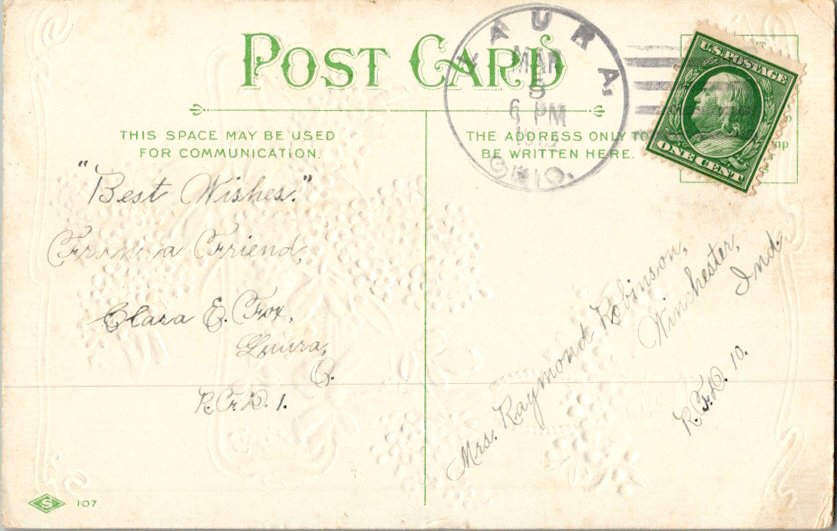 POST CARD
THIS SPACE MAY BE USED
FOR COMMUNICATION.
"Best Wishes."
From a Friend,
Clara E. Fox,
Laura,
O.
R.F.D. 1.
S 107
LAURA,
MAR
5
6 PM
OHIO.
U.S. POSTAGE
ONE CENT
THE ADDRESS ONLY TO
BE WRITTEN HERE.
Mrs. Raymond Robinson,
Winchester,
Ind.
R.F.D. 10.